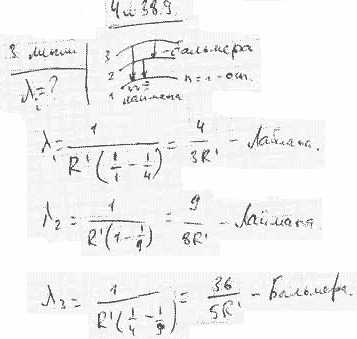 4и38.9
3 линии
λᵢ = ?
3 – Бальмера
2 n = 1 – осн.
1 Лаймана
λ₁ = 1 / (R'(1/1 – 1/4)) = 4/3R' – Лаймана.
λ₂ = 1 / (R'(1 – 1/9)) = 9/8R' – Лаймана
λ₃ = 1 / (R'(1/4 – 1/9)) = 36/5R' – Бальмера.